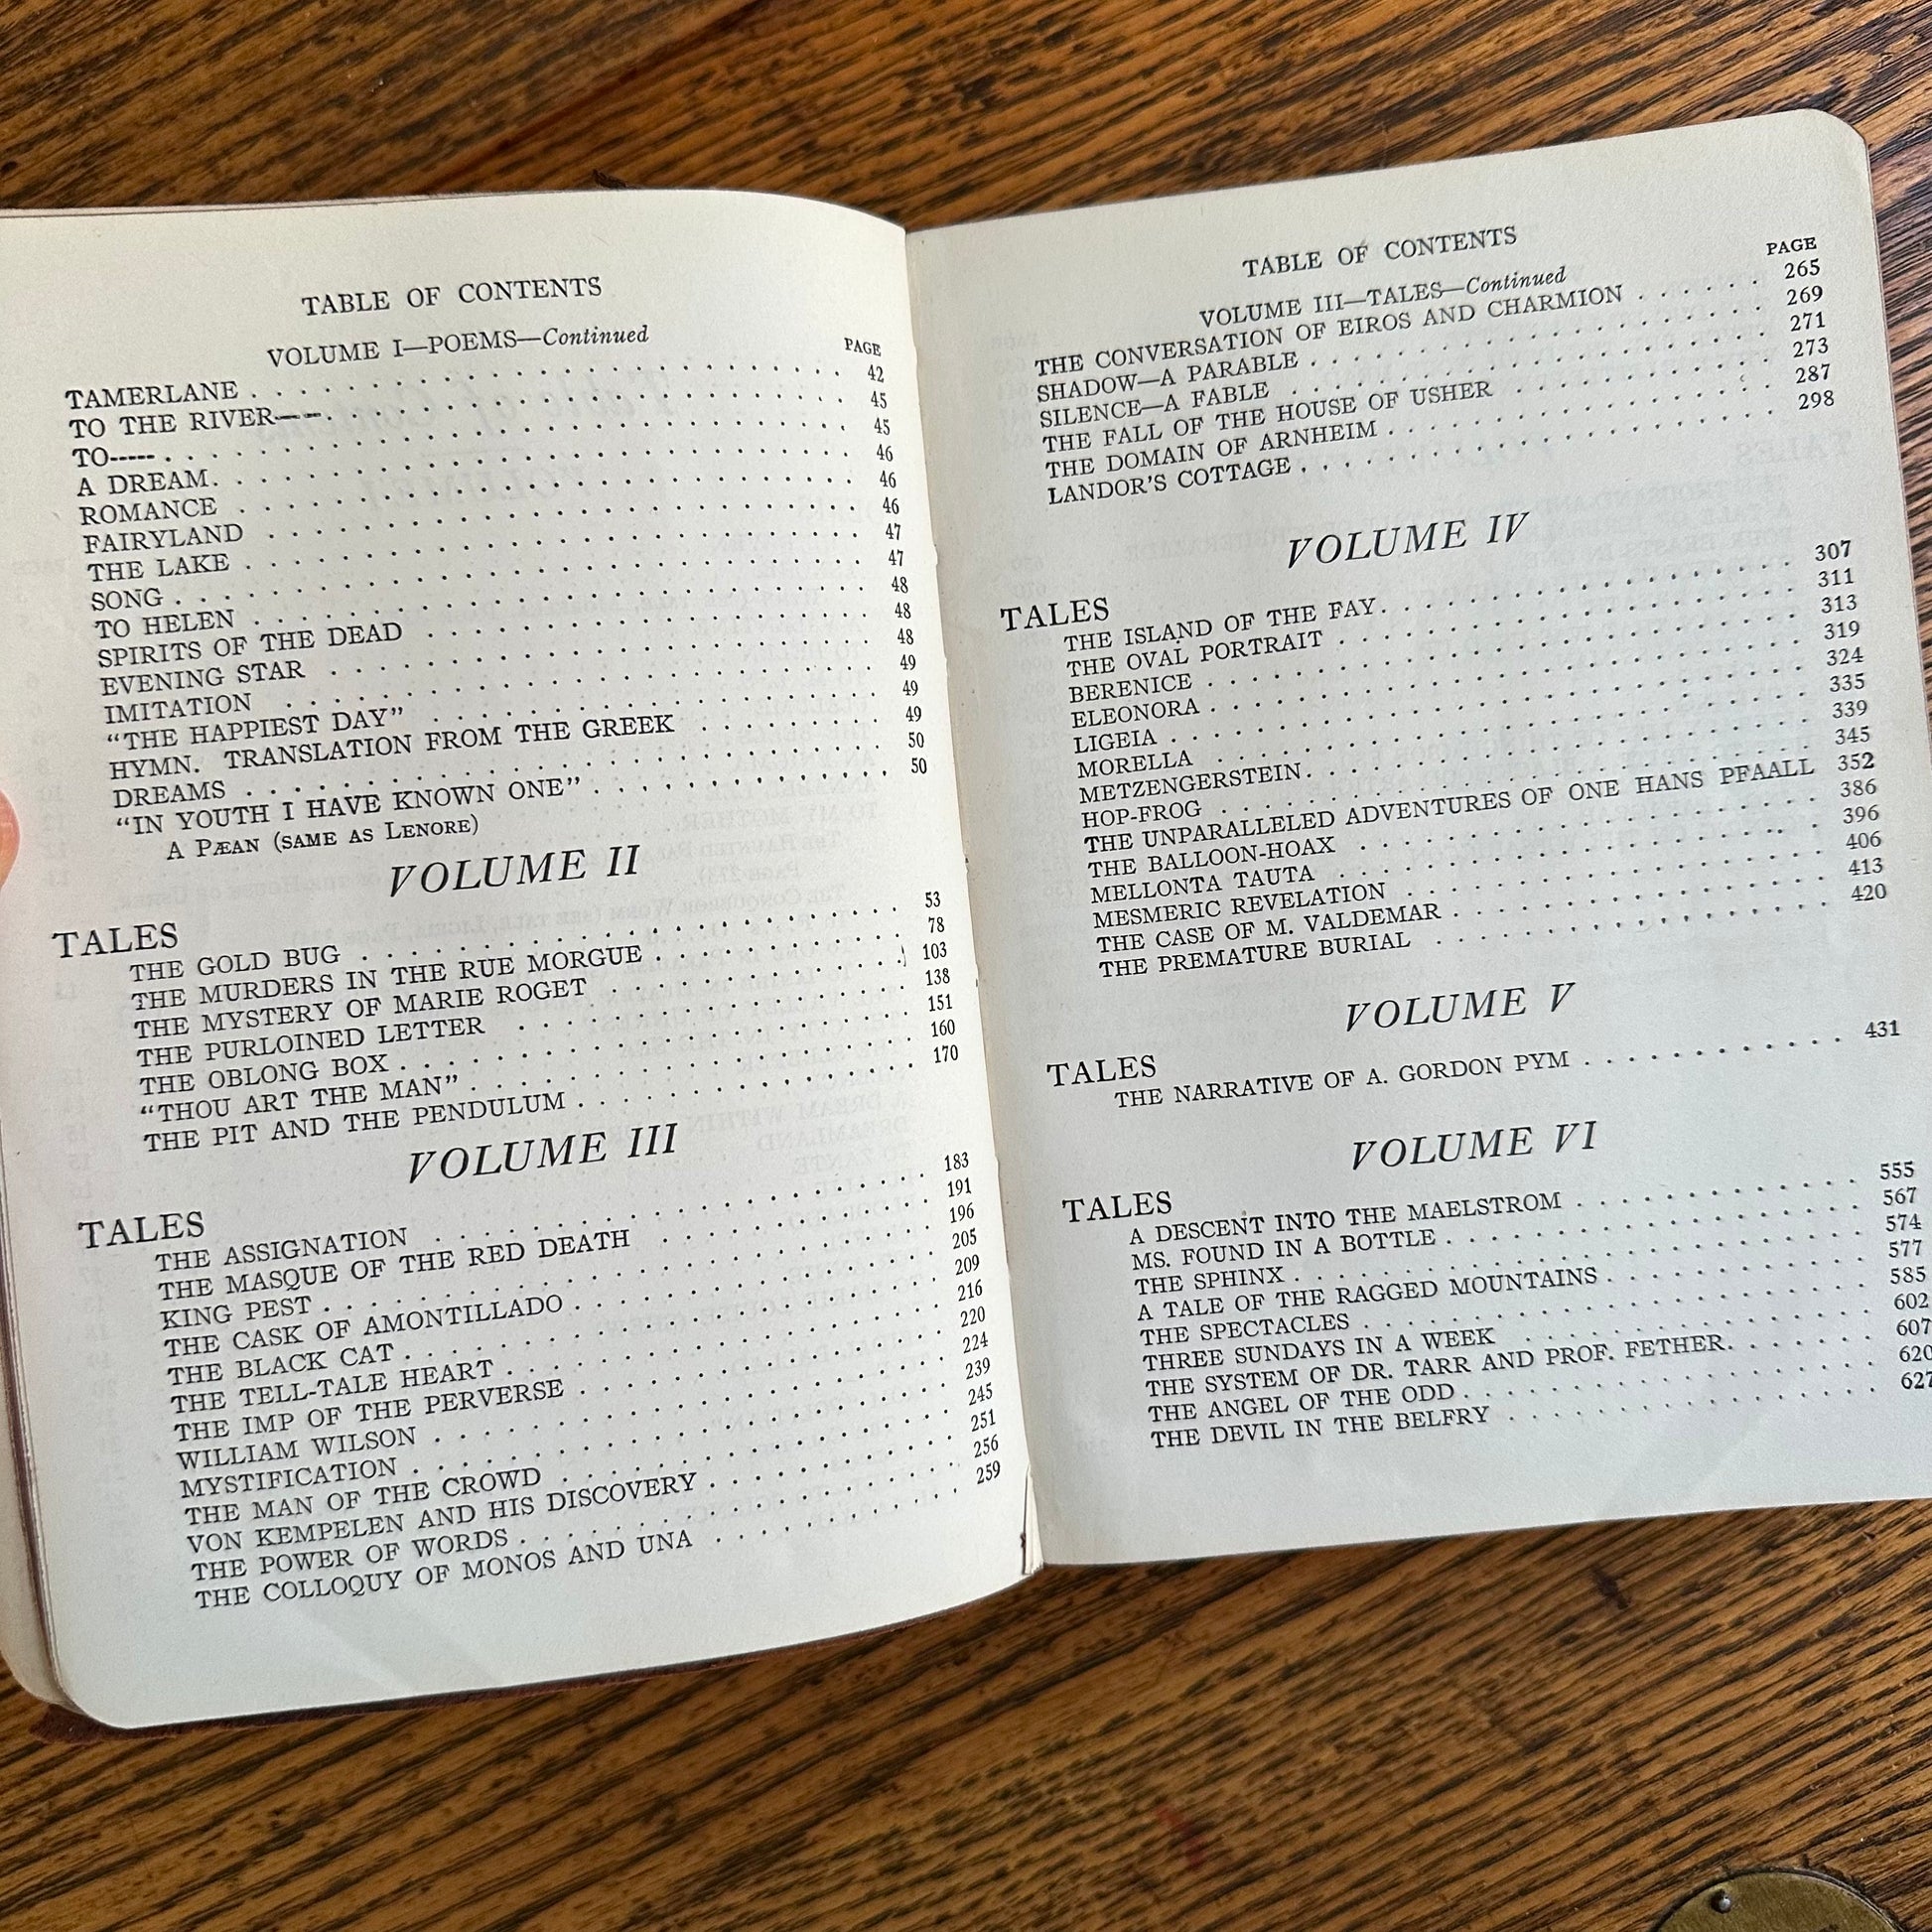 TABLE OF CONTENTS
VOLUME I—POEMS—Continued
PAGE
TAMERLANE . . . . . . . . . . 42
TO THE RIVER—— . . . . . . . . . . 45
TO----- . . . . . . . . . . 45
A DREAM . . . . . . . . . . 46
ROMANCE . . . . . . . . . . 46
FAIRYLAND . . . . . . . . . . 46
THE LAKE . . . . . . . . . . 47
SONG . . . . . . . . . . 47
TO HELEN . . . . . . . . . . 48
SPIRITS OF THE DEAD . . . . . . . . . . 48
EVENING STAR . . . . . . . . . . 48
IMITATION . . . . . . . . . . 49
"THE HAPPIEST DAY" . . . . . . . . . . 49
HYMN. TRANSLATION FROM THE GREEK . . . . . . . . . . 49
DREAMS . . . . . . . . . . 50
"IN YOUTH I HAVE KNOWN ONE" . . . . . . . . . . 50
A PÆAN (SAME AS LENORE)
VOLUME II
TALES
THE GOLD BUG . . . . . . . . . . 53
THE MURDERS IN THE RUE MORGUE . . . . . . . . . . 78
THE MYSTERY OF MARIE ROGET . . . . . . . . . . 103
THE PURLOINED LETTER . . . . . . . . . . 138
THE OBLONG BOX . . . . . . . . . . 151
"THOU ART THE MAN" . . . . . . . . . . 160
THE PIT AND THE PENDULUM . . . . . . . . . . 170
VOLUME III
TALES
THE ASSIGNATION . . . . . . . . . . 183
THE MASQUE OF THE RED DEATH . . . . . . . . . . 191
KING PEST . . . . . . . . . . 196
THE CASK OF AMONTILLADO . . . . . . . . . . 205
THE BLACK CAT . . . . . . . . . . 209
THE TELL-TALE HEART . . . . . . . . . . 216
THE IMP OF THE PERVERSE . . . . . . . . . . 220
WILLIAM WILSON . . . . . . . . . . 224
MYSTIFICATION . . . . . . . . . . 239
THE MAN OF THE CROWD . . . . . . . . . . 245
VON KEMPELEN AND HIS DISCOVERY . . . . . . . . . . 251
THE POWER OF WORDS . . . . . . . . . . 256
THE COLLOQUY OF MONOS AND UNA . . . . . . . . . . 259
TABLE OF CONTENTS
VOLUME III—TALES—Continued
PAGE
THE CONVERSATION OF EIROS AND CHARMION . . . . . . 265
SHADOW—A PARABLE . . . . . . . . . . 269
SILENCE—A FABLE . . . . . . . . . . 271
THE FALL OF THE HOUSE OF USHER . . . . . . . . . . 273
THE DOMAIN OF ARNHEIM . . . . . . . . . . 287
LANDOR'S COTTAGE . . . . . . . . . . 298
VOLUME IV
TALES
THE ISLAND OF THE FAY . . . . . . . . . . 307
THE OVAL PORTRAIT . . . . . . . . . . 311
BERENICE . . . . . . . . . . 313
ELEONORA . . . . . . . . . . 319
LIGEIA . . . . . . . . . . 324
MORELLA . . . . . . . . . . 335
METZENGERSTEIN . . . . . . . . . . 339
HOP-FROG . . . . . . . . . . 345
THE UNPARALLELED ADVENTURES OF ONE HANS PFAALL 352
THE BALLOON-HOAX . . . . . . . . . . 386
MELLONTA TAUTA . . . . . . . . . . 396
MESMERIC REVELATION . . . . . . . . . . 406
THE CASE OF M. VALDEMAR . . . . . . . . . . 413
THE PREMATURE BURIAL . . . . . . . . . . 420
VOLUME V
TALES
THE NARRATIVE OF A. GORDON PYM . . . . . . . . . . 431
VOLUME VI
TALES
A DESCENT INTO THE MAELSTROM . . . . . . . . . . 555
MS. FOUND IN A BOTTLE . . . . . . . . . . 567
THE SPHINX . . . . . . . . . . 574
A TALE OF THE RAGGED MOUNTAINS . . . . . . . . . . 577
THE SPECTACLES . . . . . . . . . . 585
THREE SUNDAYS IN A WEEK . . . . . . . . . . 602
THE SYSTEM OF DR. TARR AND PROF. FETHER . . . . . . 607
THE ANGEL OF THE ODD . . . . . . . . . . 620
THE DEVIL IN THE BELFRY . . . . . . . . . . 627